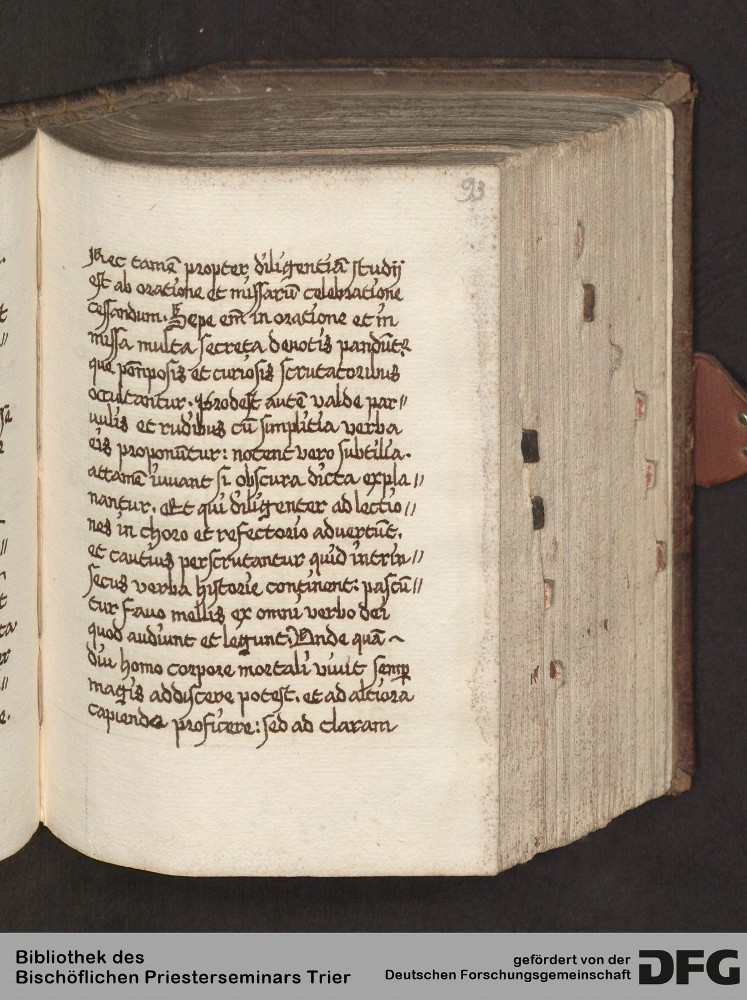 93
Nec tamē propter diligentiā studij
est ab oratione et missarū celebratione
cessandum. Sepe em̄ in oratione et in
missa multa secreta deuotis pandūtᷣ
que pomposis et curiosis scrutatoribus
occultantur. Prodest autē valde par//
uulis et rudibus cū simplitia verba
eis proponūtur: nocent vero subtilia.
attamē iuuant si obscura dicta expla//
nantur. Et qui diligenter ad lectio//
nes in choro et refectorio aduertūt.
et cautius perscrutantur quid intrin//
secus verba historie continent: pascū//
tur fauo mellis ex omni verbo dei
quod audiunt et legunt. Unde quā~
diu homo corpore mortali viuit semꝑ
magis addiscere potest. et ad altiora
capienda proficere: sed ad claram
Bibliothek des
Bischöflichen Priesterseminars Trier
gefördert von der
Deutschen Forschungsgemeinschaft
DFG